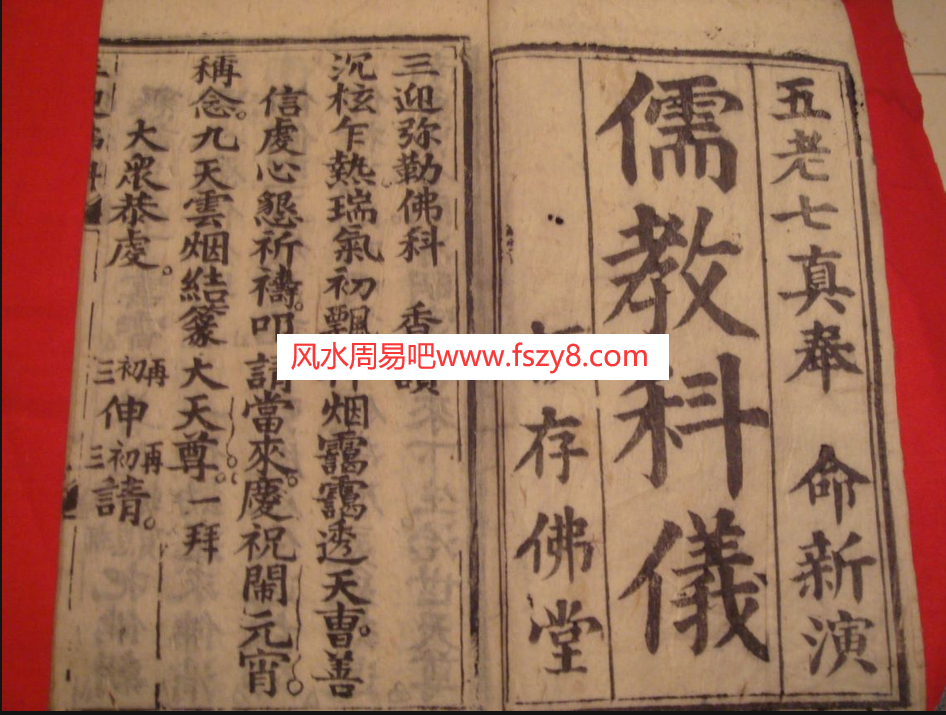 五老七真奉 命新演
儒教科儀
存佛堂
三迎弥勒佛科 香讚
沉檀乍熱瑞氣初飄 烟靄靄透天曹善
信虔心懇祈禱叩請當來慶祝閙元宵
稱念九天雲烟結篆大天尊 一拜
大衆恭虔 初再三伸 初再三請
风水周易吧www.fszy8.com